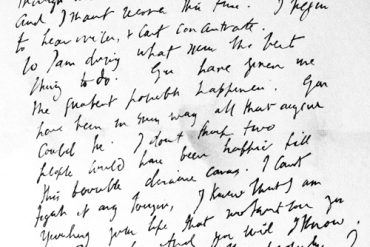 And I shant recover this time. I begin
to hear voices, & cant concentrate.
So I am doing what seems the best
thing to do. You have given me
the greatest possible happiness. You
have been in every way all that anyone
could be. I dont think two
people could have been happier till
this terrible disease came. I cant
fight it any longer, I know that I am
spoiling your life that without me you
And you will I know.